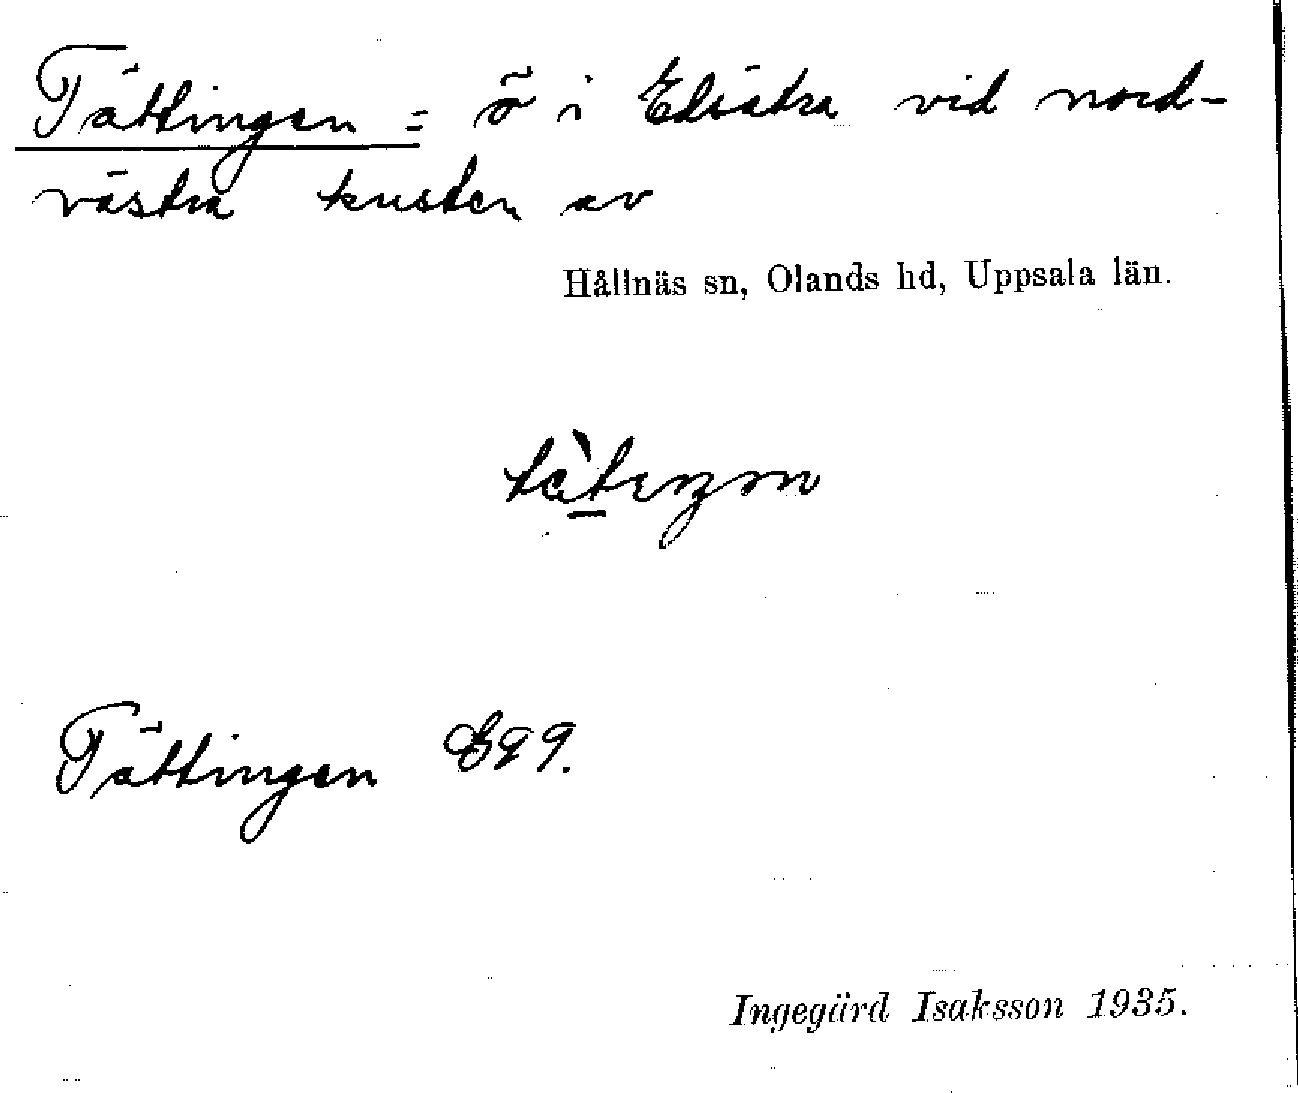 Tättingen = ö i Elsätra vid nord-
västra kusten av
Hållnäs sn, Olands hd, Uppsala län.
Tättingen
Ingegärd Isaksson 1935.